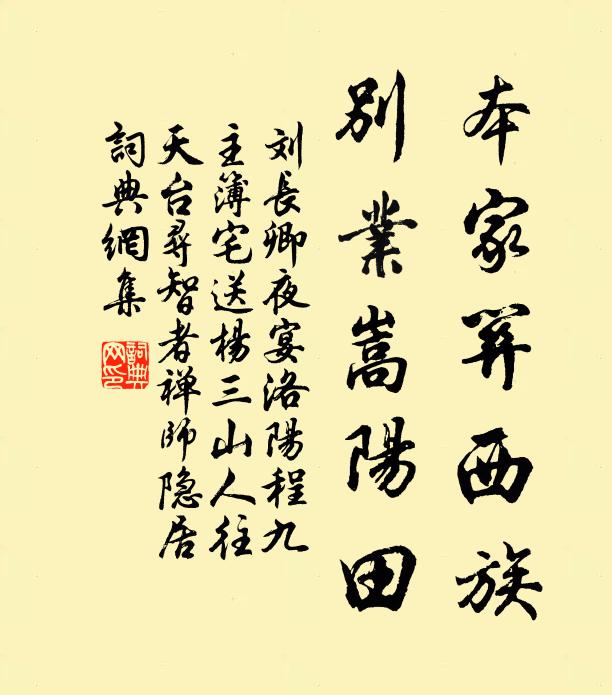 本家關西族
別業嵩陽田
刘長卿夜宴洛陽程九
主簿宅送楊三山人往
天台尋智者禅師隐居
詞典網集
詞典网印